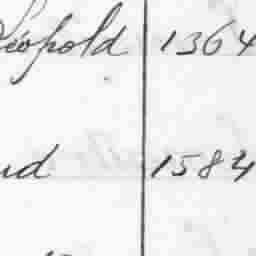 Léopold 1364
ud 1584